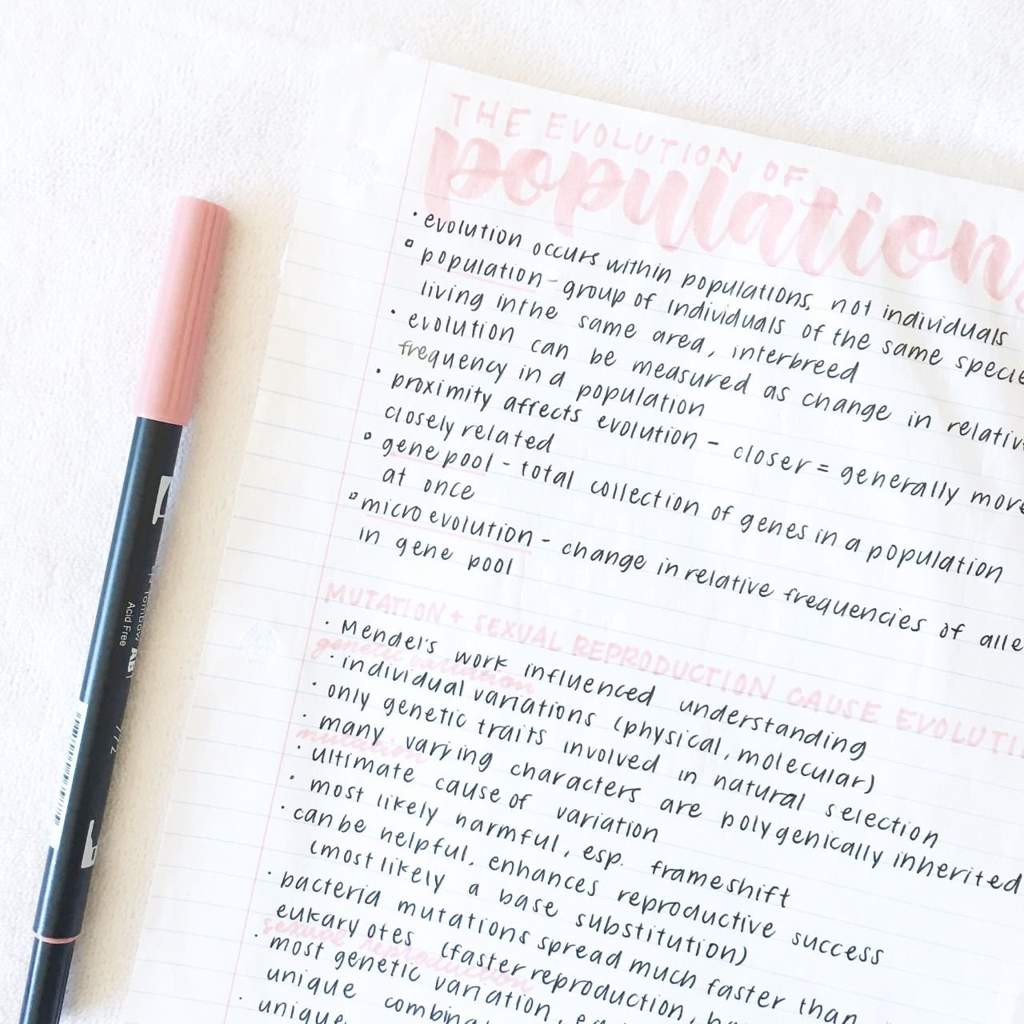 THE EVOLUTION OF
populations
• evolution occurs within populations, not individuals
▫ population - group of individuals of the same specie
living in the same area, interbreed
• evolution can be measured as change in relative
frequency in a population
• proximity affects evolution - closer = generally more
closely related
▫ gene pool - total collection of genes in a population
at once
▫ micro evolution - change in relative frequencies of alle
in gene pool
MUTATION + SEXUAL REPRODUCTION CAUSE EVOLUTI
• Mendel's work influenced understanding
genetic variation
• individual variations (physical, molecular)
• only genetic traits involved in natural selection
• many varying characters are polygenically inherited
mutation
• ultimate cause of variation
• most likely harmful, esp. frameshift
• can be helpful, enhances reproductive success
(most likely a base substitution)
• bacteria mutations spread much faster than
eukaryotes (faster reproduction,
sexual reproduction
• most genetic variation,
unique
• unique
Tombow AB
Acid Free
772